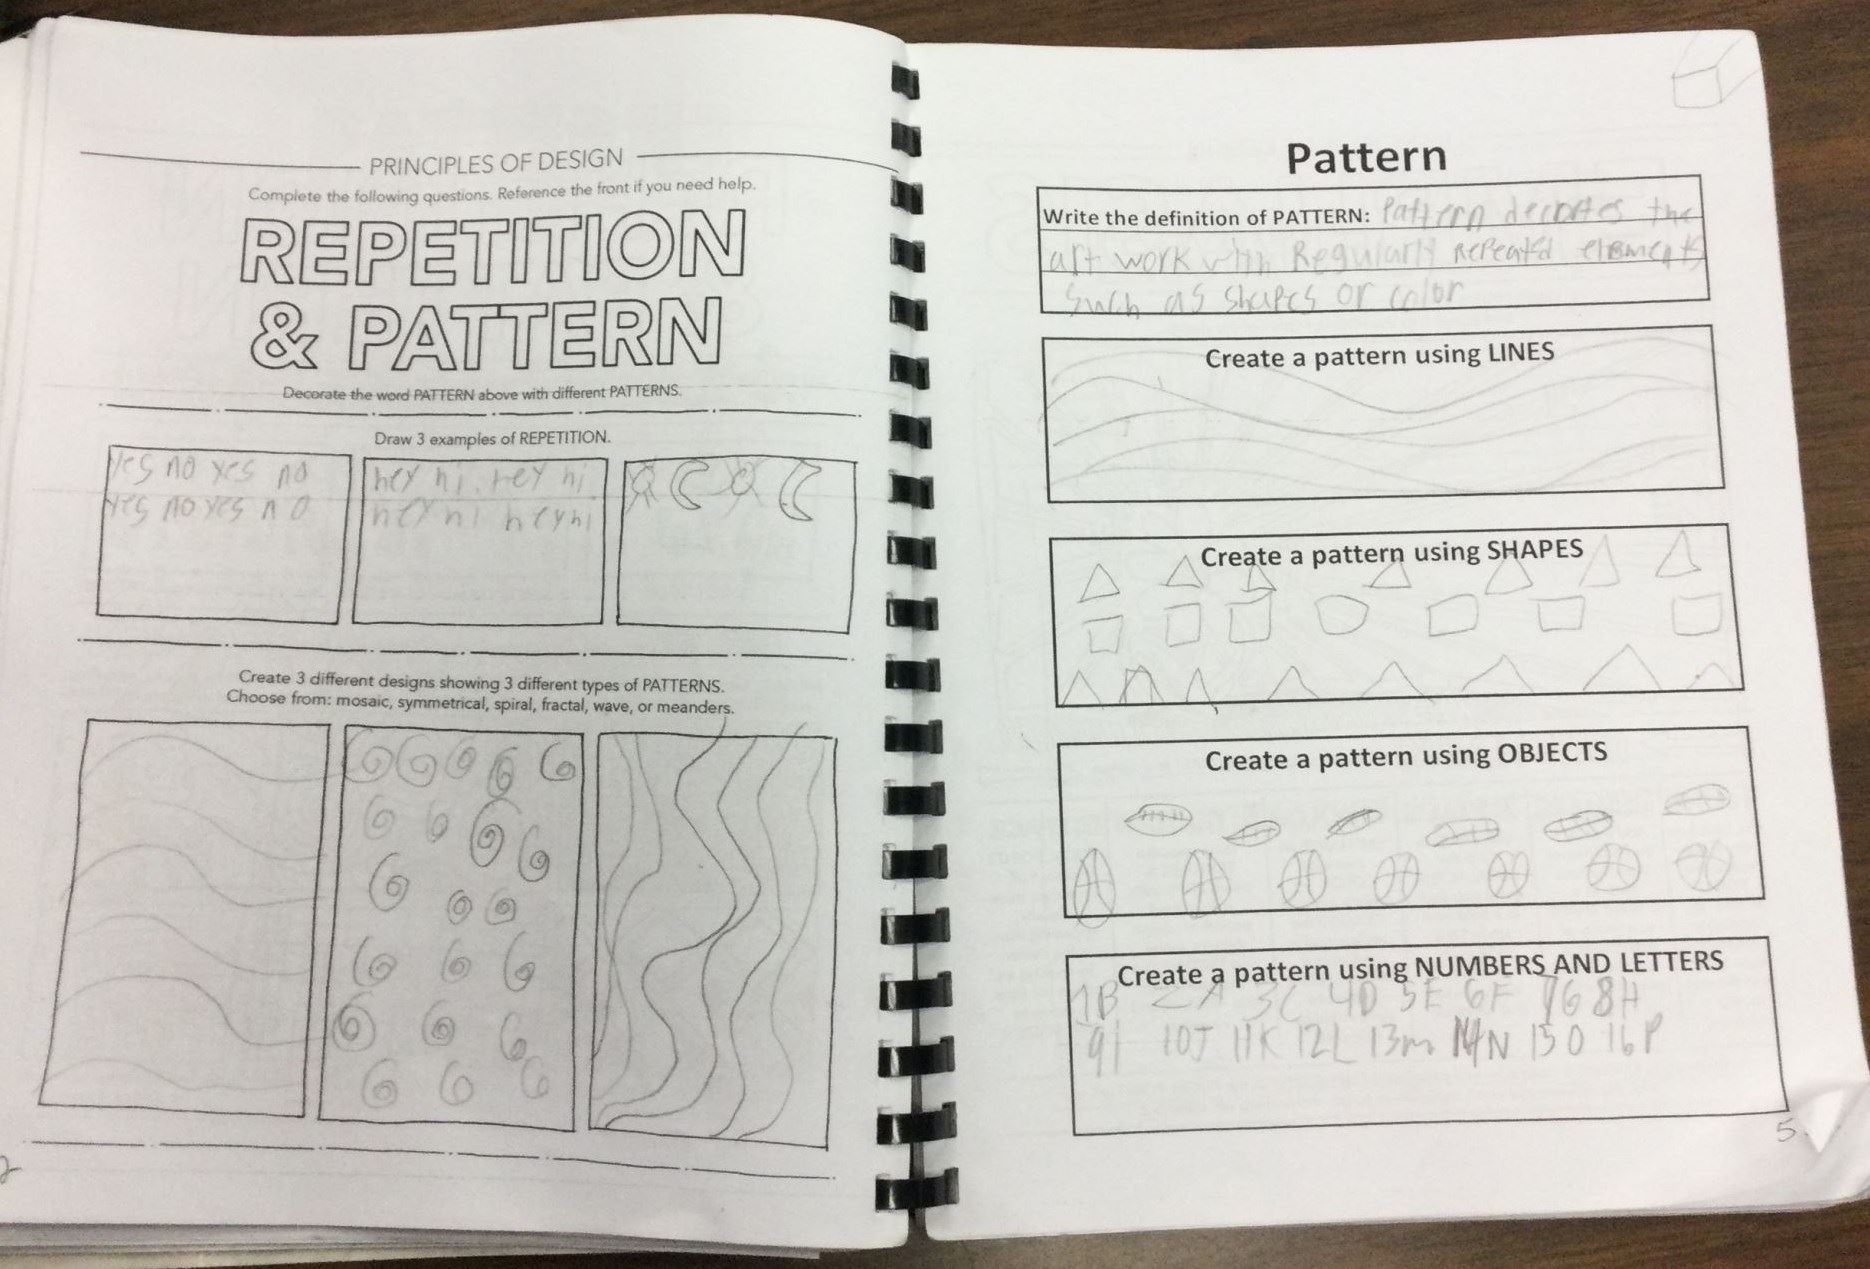 PRINCIPLES OF DESIGN
Complete the following questions. Reference the front if you need help.
REPETITION
& PATTERN
Decorate the word PATTERN above with different PATTERNS.
Draw 3 examples of REPETITION.
yes no yes no
yes no yes no
hey hi hey hi
hey hi hey hi
Create 3 different designs showing 3 different types of PATTERNS.
Choose from: mosaic, symmetrical, spiral, fractal, wave, or meanders.
2
Pattern
Write the definition of PATTERN: Pattern decortes the
art work with Regularly repeated elements
such as shapes or color
Create a pattern using LINES
Create a pattern using SHAPES
Create a pattern using OBJECTS
Create a pattern using NUMBERS AND LETTERS
1B 2A 3C 4D 5E 6F 7G 8H
9I 10J 11K 12L 13m 14N 15O 16P
5